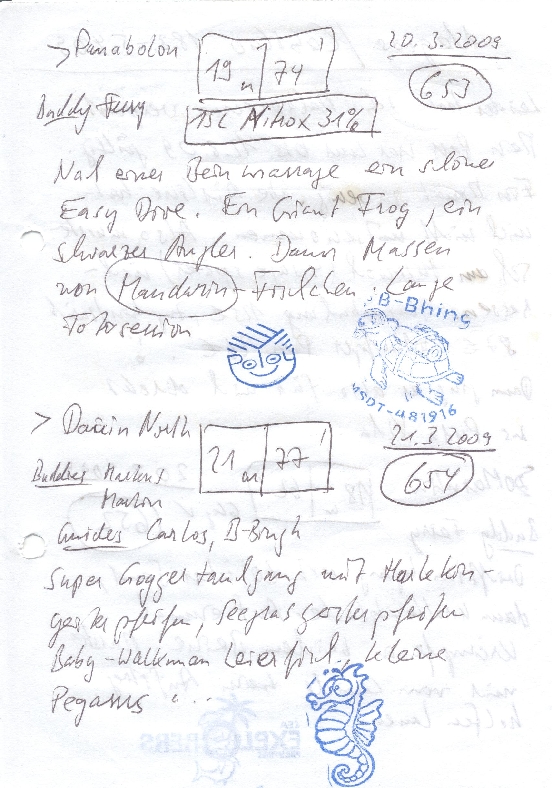 > Panabolon
19 m | 74'
20.3.2009
653
Buddy Ferry
15L Nitrox 31%
Nach einer Beinmassage ein schöner
Easy Dive. Ein Giant Frog, ein
schwarzer Angler. Dann Massen
von Mandarin-Fischchen. Lange
Fotosession
Poloy
B-Bhing
MSDT-481916
> Dauin North
21 m | 77'
21.3.2009
654
Buddies Hartmut
Guides Carlos, B-Bingh
Super Crittertauchgang mit Harlekin-
geisterpfeifen, Seegrasgeisterpfeifen
Baby-Walkman Leierfisch, kleine
Pegasus ...
EXPLORERS